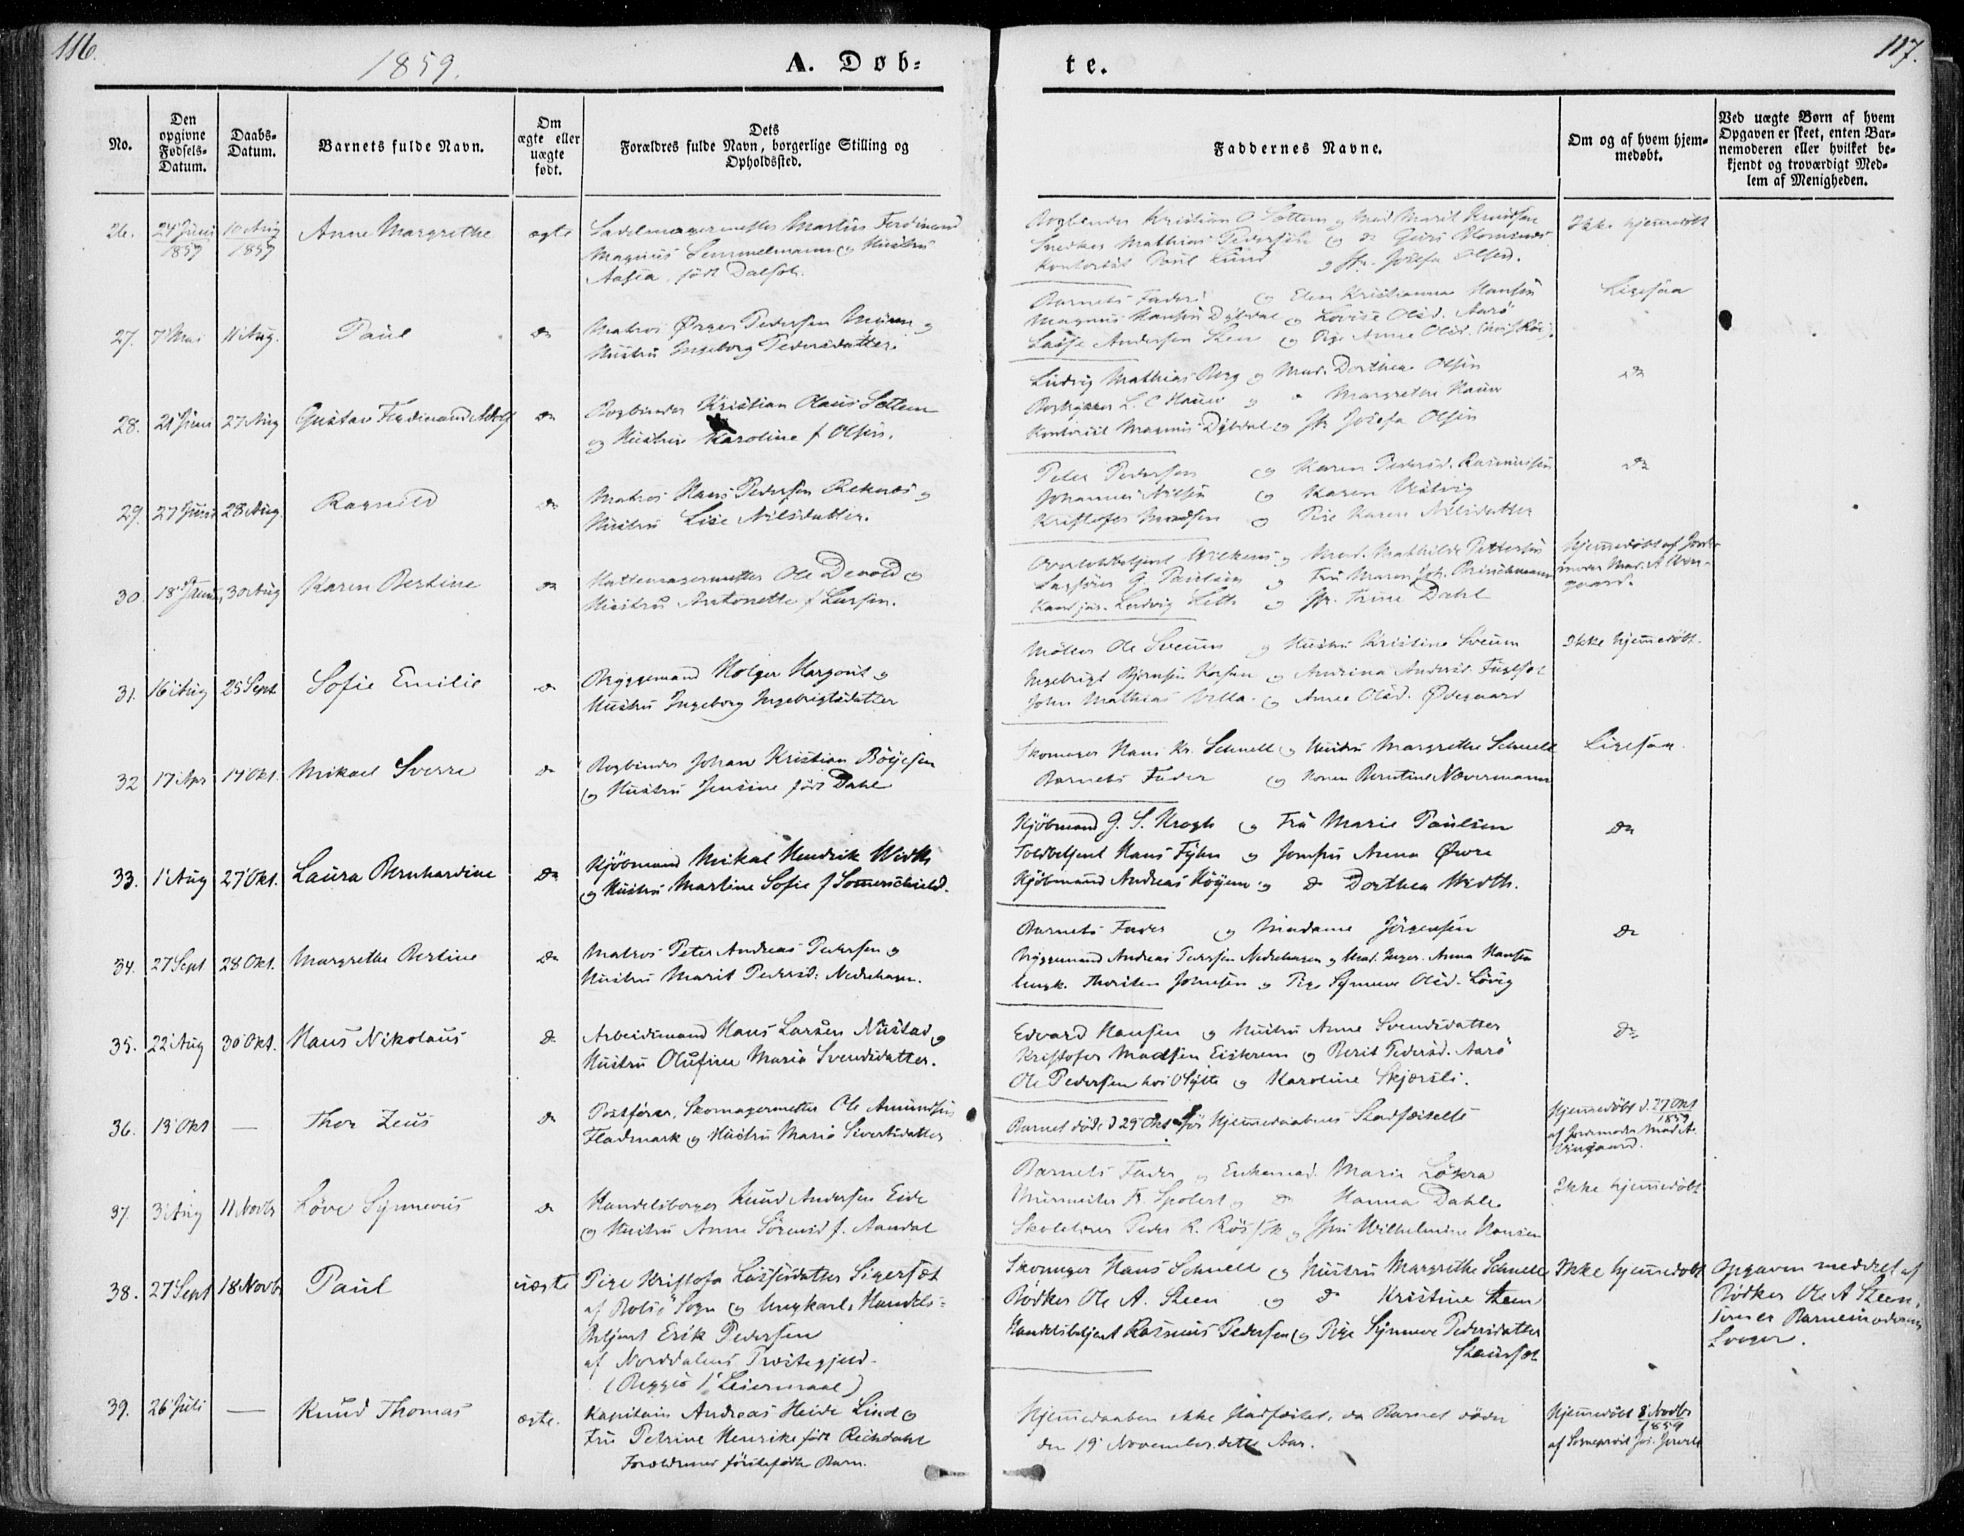 116.
1859.
A. Døb-
te.
117.
No.
Den opgivne Fødsels-Datum.
Daabs-Datum.
Barnets fulde Navn.
Om ægte eller uægte født.
Dets Forældres fulde Navn, borgerlige Stilling og Opholdssted.
Faddernes Navne.
Om og af hvem hjem-medøbt.
Ved uægte Børn af hvem Opgaven er skeet, enten Bar-nemoderen eller hvilket be-kjendt og troværdigt Med-lem af Menigheden.
26. 24 Juni 1859 10 Aug 1859 Anne Margrethe ægte
Sadelmagermester Martin Ferdinand
Magnus Semmelmann og Hustru
født Dalseth.
Bogbinder Kristian O Sættem og Mad. Marit Knudsen
Snedker Mathias Pedersen og do
Kontorist Paul Lund og Jfr. Josefa Olsen.
Ikke hjemmedøbt
27. 7 Mai 11 Aug. Paul do
Matros Pedersen og
Hustru Ingeborg Pedersdatter.
Barnets Fader og Elen Kristianna Hansen
Magnus Hansen Dybdal og Lovise Olsd. Aarö
Lasse Andersen Steen og Pige Anne Olsd.
Ligesaa
28. 21 Juni 27 Aug Gustav Ferdinand Adolf do
Bogbinder Kristian Olaus Sættem
og Hustru Karoline f Olsen.
Ludvig Mathias Berg og Mad. Dorthea Olsen
Bogtrykker L. O Hauer og " Margrethe Hauer
Kontorist Magnus Dybdal og Jfr Josefa Olsen
do
29. 27 Juni 28 Aug. Ragnild do
Matros Hans Pedersen Reknes og
Hustru Lise Nilsdatter.
Peter Pedersen og Karen Pedersd. Rasmussen
Johannes Nilsen og Karen
Kristofer Madsen og Pige Karen Nilsdatter
do
30. 18 Juni 30 Aug Karen Bertine do
Hattemagermester Ole Devold og
Hustru Antonette f Larsen.
Overtoldbetjent Wilkens og Mad. Mathilde Pettersen
Sagfører G. Paulsen og Fru Maren Joh. Brinchmann
Kand. jur. Ludvig Leth og Jfr. Trine Dahl
Hjemmedøbt af Jorde-
moder Mad. A Win-
gaard.
31. 16 Aug 25 Sept Sofie Emilie do
Bryggemand Holger Hargout og
Hustru Ingeborg Ingebrigtsdatter
Møller Ole Sveum og Hustru Kristine Sveum
Ingebrigt Bjørnsen Korsen og Andrina Andersd. Fuglset
John Mathias Villa og Anne Olsd. Ødegaard
Ikke hjemmedøbt.
32 17 Apr 14 Okt. Mikael Sverre do
Bogbinder Johan Kristian Böyesen
og Hustru Jensine født Dahl
Skomager Hans Kr. Schnell og Hustru Margrethe Schnell
Barnets Fader og Konen Berntine Nævermann
Ligesaa.
33. 1 Aug 27 Okt. Laura Bernhardine do
Kjöbmand Mikal Hendrik Wedth
og Hustru Martine Sofie f Sommerschield.
Kjöbmand G. S. Krogh og Fru Marie Paulsen
Toldbetjent Hans Fyhn og Jomfru Anna Øwre
Kjöbmand Andreas Höyem og do Dorthea Wedth.
do
34. 27 Sept 28 Okt. Margrethe Bertine do
Matros Peter Andreas Pedersen og
Hustru Marit Pedersd. Nedrehagen.
Barnets Fader og Madame Jörgensen
Bryggemand Andreas Pedersen Nedrehagen og Mad. Inger Anna Hansen
Ungk. Thorsten Johnsen og Pige Synneve Olsd. Lövig
do
35. 22 Aug 30 Okt. Hans Nikolaus do
Arbeidsmand Hans Larsen Nustad og
Hustru Olufine Maria Svendsdatter.
Edvard Hansen og Hustru Anne Svendsdatter
Kristofer Madsen Eiskrem og Berit Pedersd. Aarö
Ole Pedersen hos O Sylte og Karoline Skjærsli.
do
36. 13 Okt — Thor Zeus do
Postförer, Skomagermester Ole Amundsen
Fladmark og Hustru Maria Sivertsdatter
Barnet döde d 29 Okt för Hjemmedaabens Stadfæstelse
Hjemmedöbt d. 27 Okt 1859
af Jordemoder Mad A.
Wingaard.
37. 3 Aug 11 Novbr Löve Synnevius do
Handelsborger Knud Andersen Eide
og Hustru Anne Sörensd f. Aandal
Barnets Fader og Enkemad. Marie Lökra
Murmester Fr. Spolert og do Hanna Dahle
Skolelærer Peder K. Rös og Jfru Wilhelmine Hansen
Ikke hjemmedöbt
38. 27 Sept 18 Novbr Paul uægte
Pige Kristofa Lassesdatter Sigerset
af Bolsö Sogn og Ungkarl, Handels-
Betjent Erik Pedersen
af Norddalens Præstegjeld.
(Begges 1ste Leiermaal)
Skomager Hans Schnell og Hustru Margrethe Schnell
Bödker Ole A. Steen og do Kristine Steen
Handelsbetjent Rasmus Pedersen og Pige Synneve Pedersdatter
Ikke hjemmedöbt
Opgaven meddelt af
Bödker Ole A Steen,
som er Barnemoderens
Svoger.
39. 26 Juli — Knud Thomas ægte.
Kapitain Andreas Heide Lind og
Fru Petrine Henrike født Reichdahl
Forældrenes förstefödte Barn.
Hjemmedaaben ikke stadfæstet, da Barnet döde
den 19 November dette Aar.
Hjemmedöbt 8 Novbr 1859
af Sogneprest